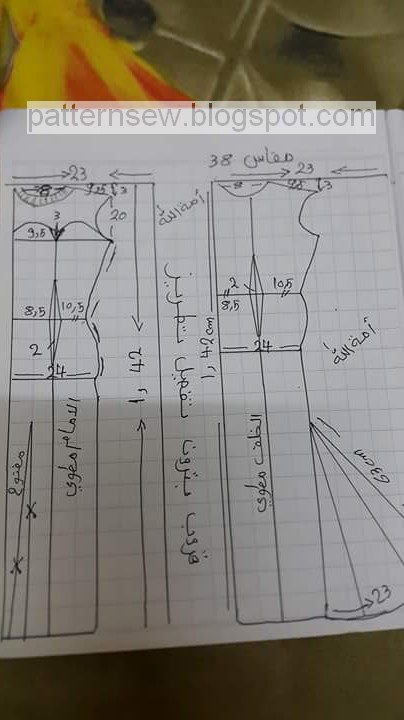 patternsew.blogspot.com
مقاس 38
23
8
9,5
3
3
9,5
20
8,5
10,5
2
24
1,42
الامام مطوي
مفتوح
أمة الله
23
8
9,5
3
2
8,5
10,5
24
1,42cm
الخلف مطوي
أمة الله
63cm
23